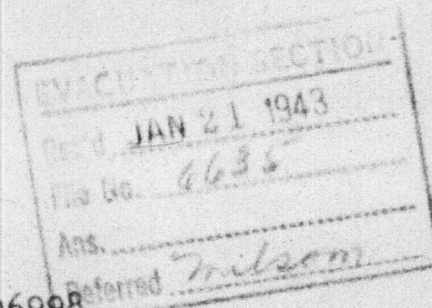 EVACUATION SECTION
Rec'd. JAN 21 1943
File No. 6635
Ans.
Referred Milsom